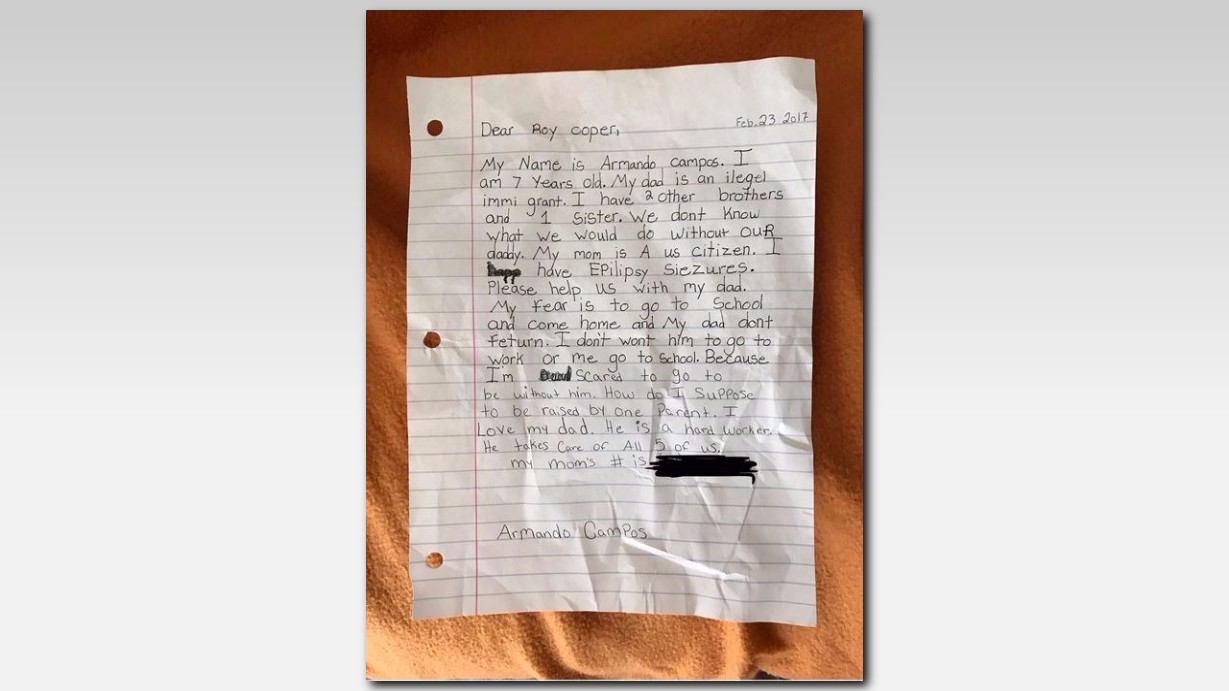 Feb. 23 2017
Dear Roy coper,
My Name is Armando campos. I
am 7 Years old. My dad is an ilegel
immi grant. I have 2 other brothers
and 1 Sister. We dont Know
what we would do without OUR
daddy. My mom is A us citizen. I
have EPilipsy Siezures.
Please help us with my dad.
My Fear is to go to School
and come home and My dad dont
Feturn. I don't want him to go to
work or me go to School. Because
I'm Scared to go to
be without him. How do I SuPPose
to be raised by one Parent. I
Love my dad. He is a hard worker.
He takes Care of All 5 of us.
my mom's # is
Armando CamPos